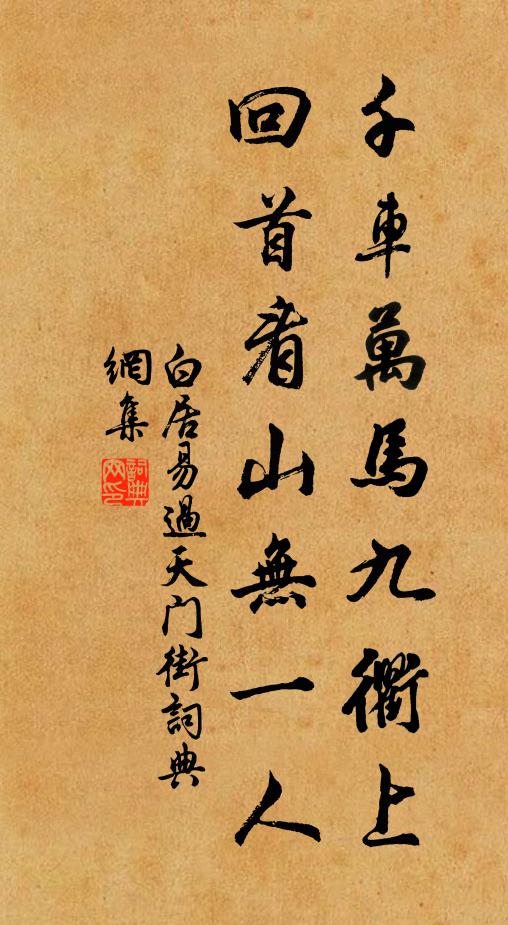 千車萬馬九衢上
回首看山無一人
白居易過天门街詞典
網集
詞典网印